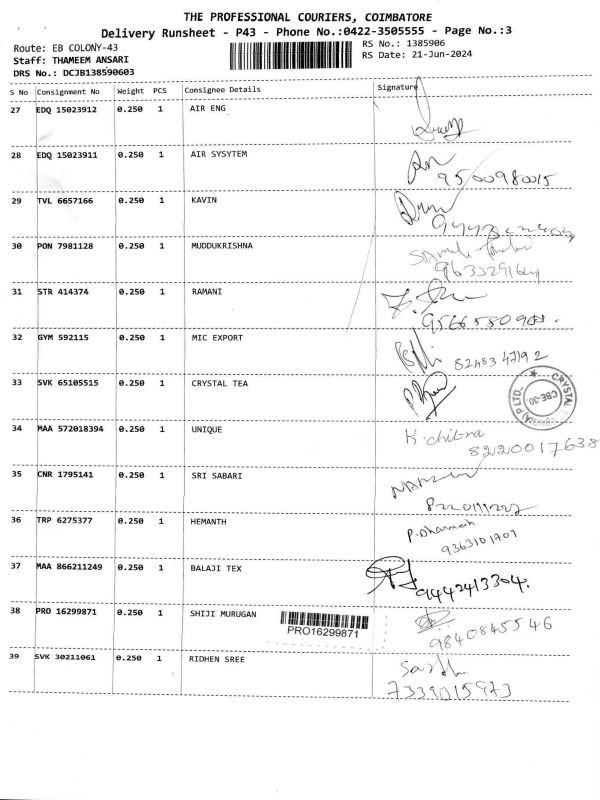 THE PROFESSIONAL COURIERS, COIMBATORE
Delivery Runsheet - P43 - Phone No.:0422-3505555 - Page No.:3
Route: EB COLONY-43
Staff: THAMEEM ANSARI
DRS No.: DCJB138590603
RS No.: 1385906
RS Date: 21-Jun-2024
S No Consignment No Weight PCS Consignee Details Signature
27 EDQ 15023912 0.250 1 AIR ENG
28 EDQ 15023911 0.250 1 AIR SYSYTEM
9500980015
29 TVL 6657166 0.250 1 KAVIN
30 PON 7981128 0.250 1 MUDDUKRISHNA
31 STR 414374 0.250 1 RAMANI
32 GYM 592115 0.250 1 MIC EXPORT
8248347192
33 SVK 65105515 0.250 1 CRYSTAL TEA
CRYSTAL
(A) P LTD.,
CBE-30
34 MAA 572018394 0.250 1 UNIQUE
K. chitra
8220017638
35 CNR 1795141 0.250 1 SRI SABARI
36 TRP 6275377 0.250 1 HEMANTH
P. Dharmesh
9363101707
37 MAA 866211249 0.250 1 BALAJI TEX
9442413304.
38 PRO 16299871 0.250 1 SHIJI MURUGAN
PRO16299871
9840845546
39 SVK 30211061 0.250 1 RIDHEN SREE
7339015973